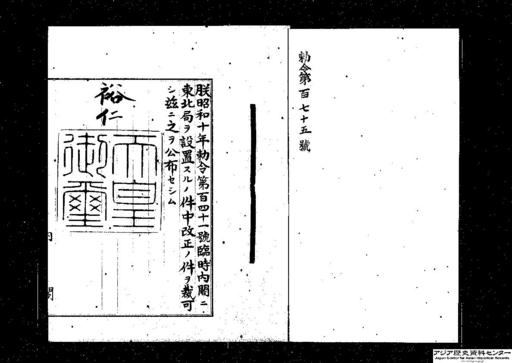 勅令第百七十五號
朕昭和十年勅令第百四十一號臨時内閣ニ
東北局ヲ設置スルノ件中改正ノ件ヲ裁可
シ茲ニ之ヲ公布セシム
裕仁
天皇
御璽
内閣
アジア歴史資料センター
Japan Center for Asian Historical Records